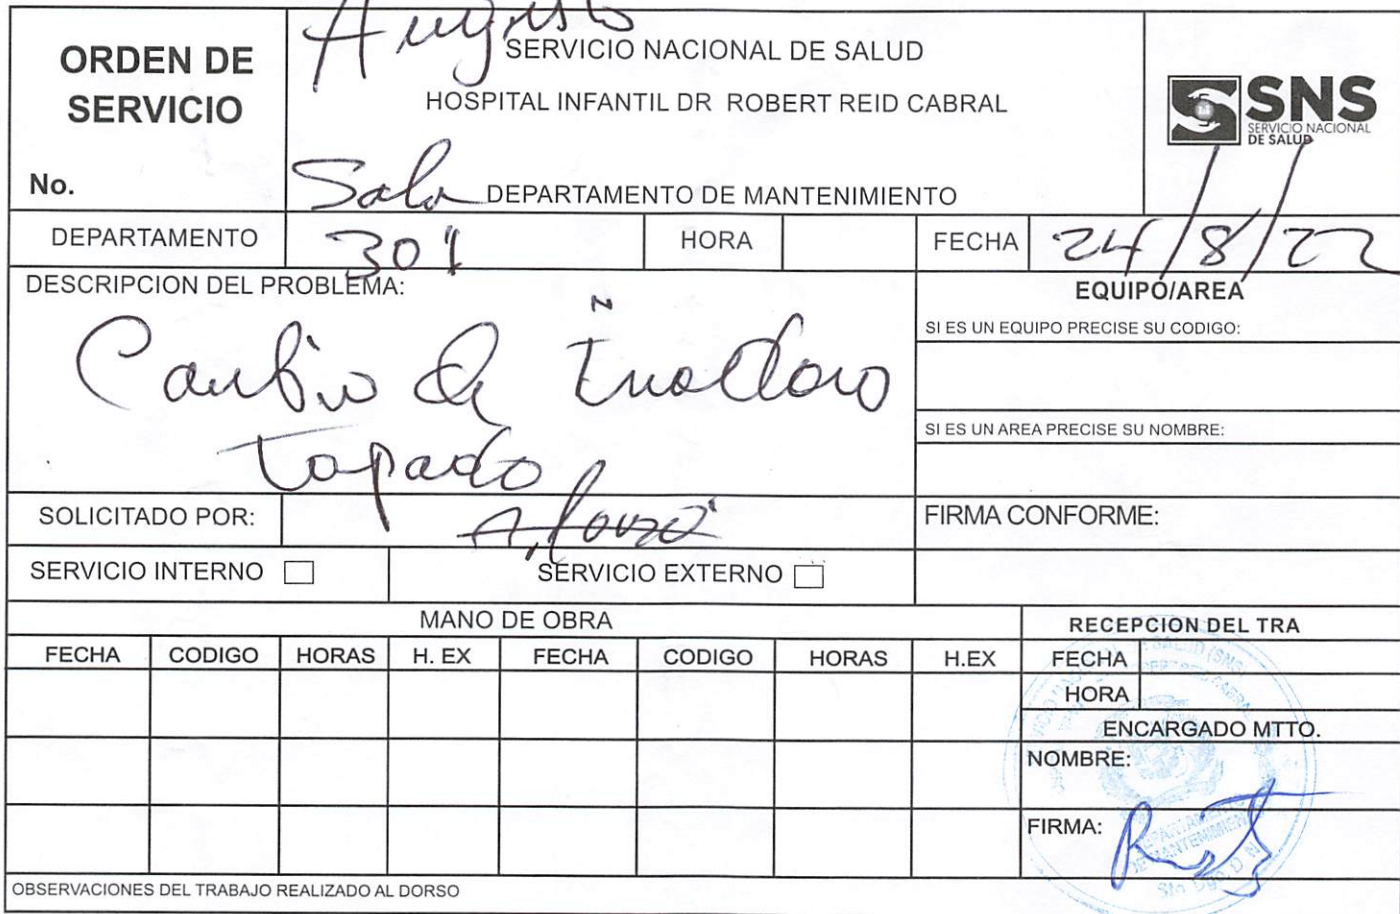 Augusto
ORDEN DE
SERVICIO
No.
SERVICIO NACIONAL DE SALUD
HOSPITAL INFANTIL DR ROBERT REID CABRAL
Sala DEPARTAMENTO DE MANTENIMIENTO
SNS
SERVICIO NACIONAL
DE SALUD
DEPARTAMENTO 301 HORA FECHA 24/8/22
DESCRIPCION DEL PROBLEMA:
Cambio de Inodoro
tapado
EQUIPO/AREA
SI ES UN EQUIPO PRECISE SU CODIGO:
SI ES UN AREA PRECISE SU NOMBRE:
SOLICITADO POR: FIRMA CONFORME:
SERVICIO INTERNO SERVICIO EXTERNO
MANO DE OBRA RECEPCION DEL TRA
FECHA CODIGO HORAS H. EX FECHA CODIGO HORAS H.EX FECHA
HORA
ENCARGADO MTTO.
NOMBRE:
FIRMA:
DEPARTAMENTO
DE MANTENIMIENTO
Sto Dgo, D N
OBSERVACIONES DEL TRABAJO REALIZADO AL DORSO